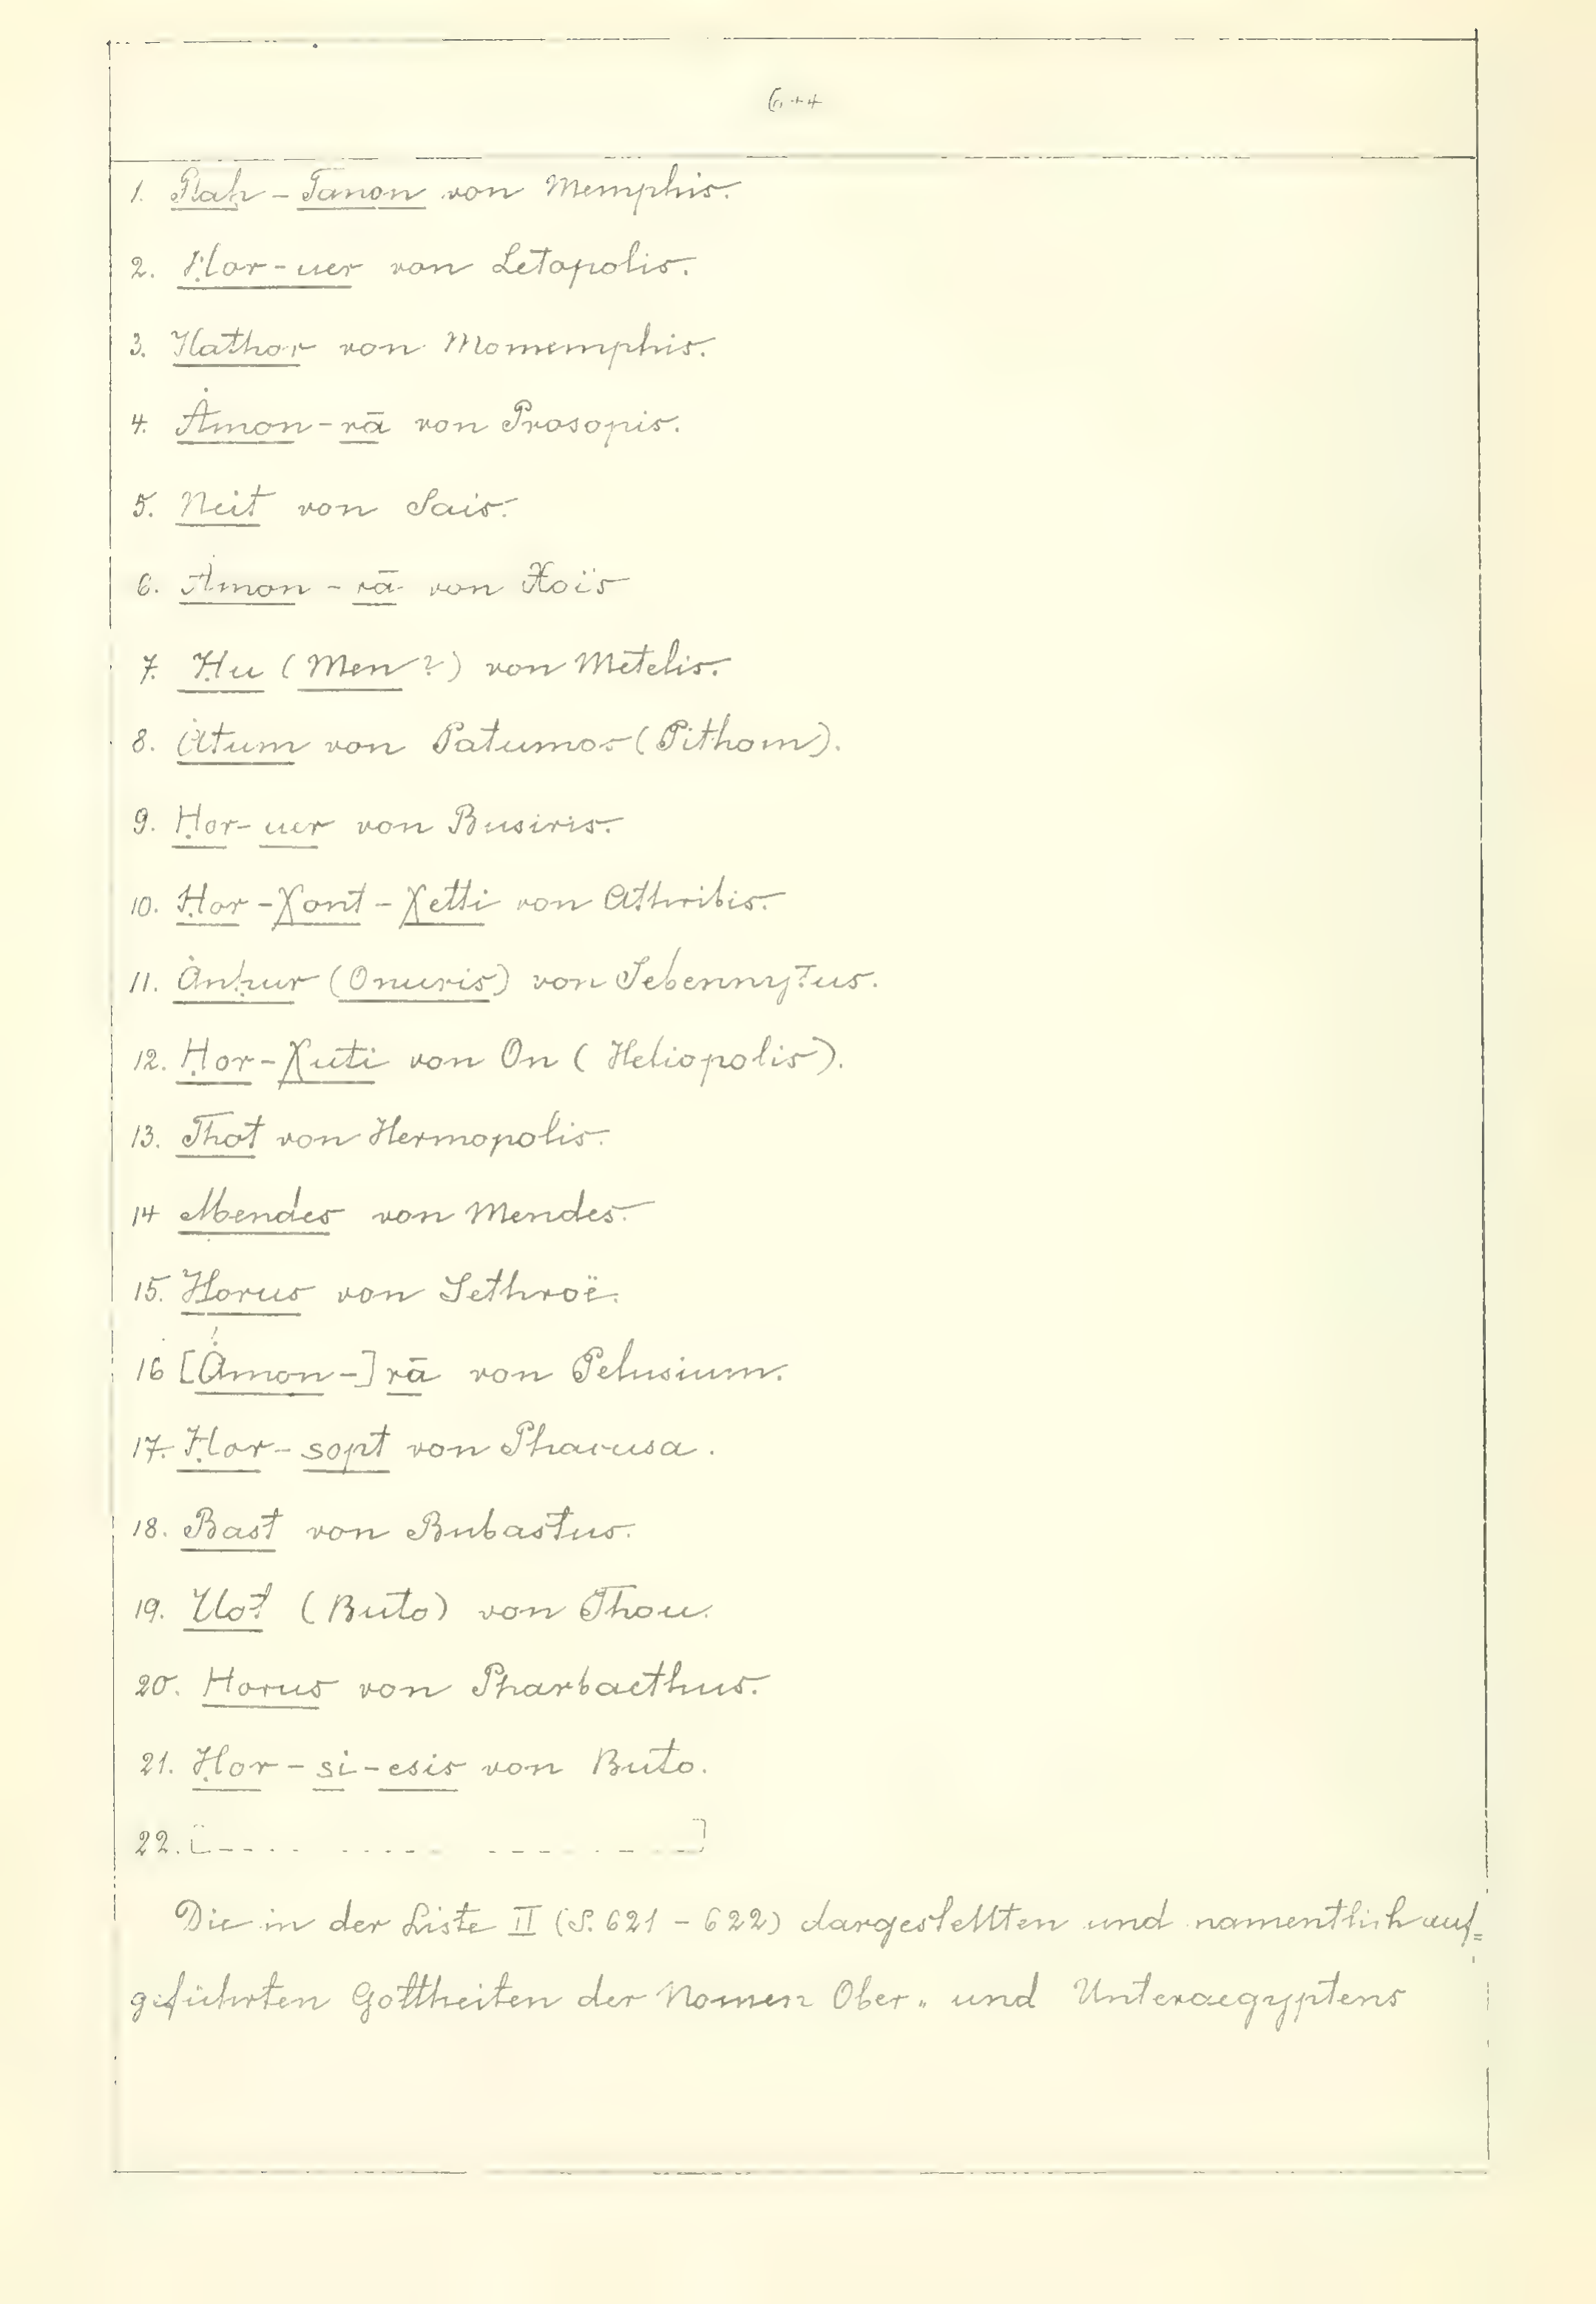 1. Ptaḥ - Tanon von Memphis.
2. Ḥor-uer von Letopolis.
3. Hathor von Momemphis.
4. Ȧmon-rā von Prosopis.
5. Neit von Sais.
6. Ȧmon - rā von Xoïs
7. Ḥu (Men?) von Metelis.
8. Ȧtum von Patumos (Pithom).
9. Ḥor-uer von Busiris.
10. Ḥor-Xont-Xetti von Athribis.
11. Ȧnḥur (Onuris) von Sebennytus.
12. Ḥor-Xuti von On (Heliopolis).
13. Thot von Hermopolis.
14 Mendes von Mendes.
15. Horus von Sethroë.
16 [Ȧmon-]rā von Pelusium.
17. Ḥor-sopt von Phacusa.
18. Bast von Bubastus.
19. Uot (Buto) von Thou.
20. Horus von Pharbaethus.
21. Ḥor-si-esis von Buto.
22. [---- ---- -----]
Die in der Liste II (S. 621 - 622) dargestellten und namentlich auf=
geführten Gottheiten der Nomen Ober- und Unteraegyptens